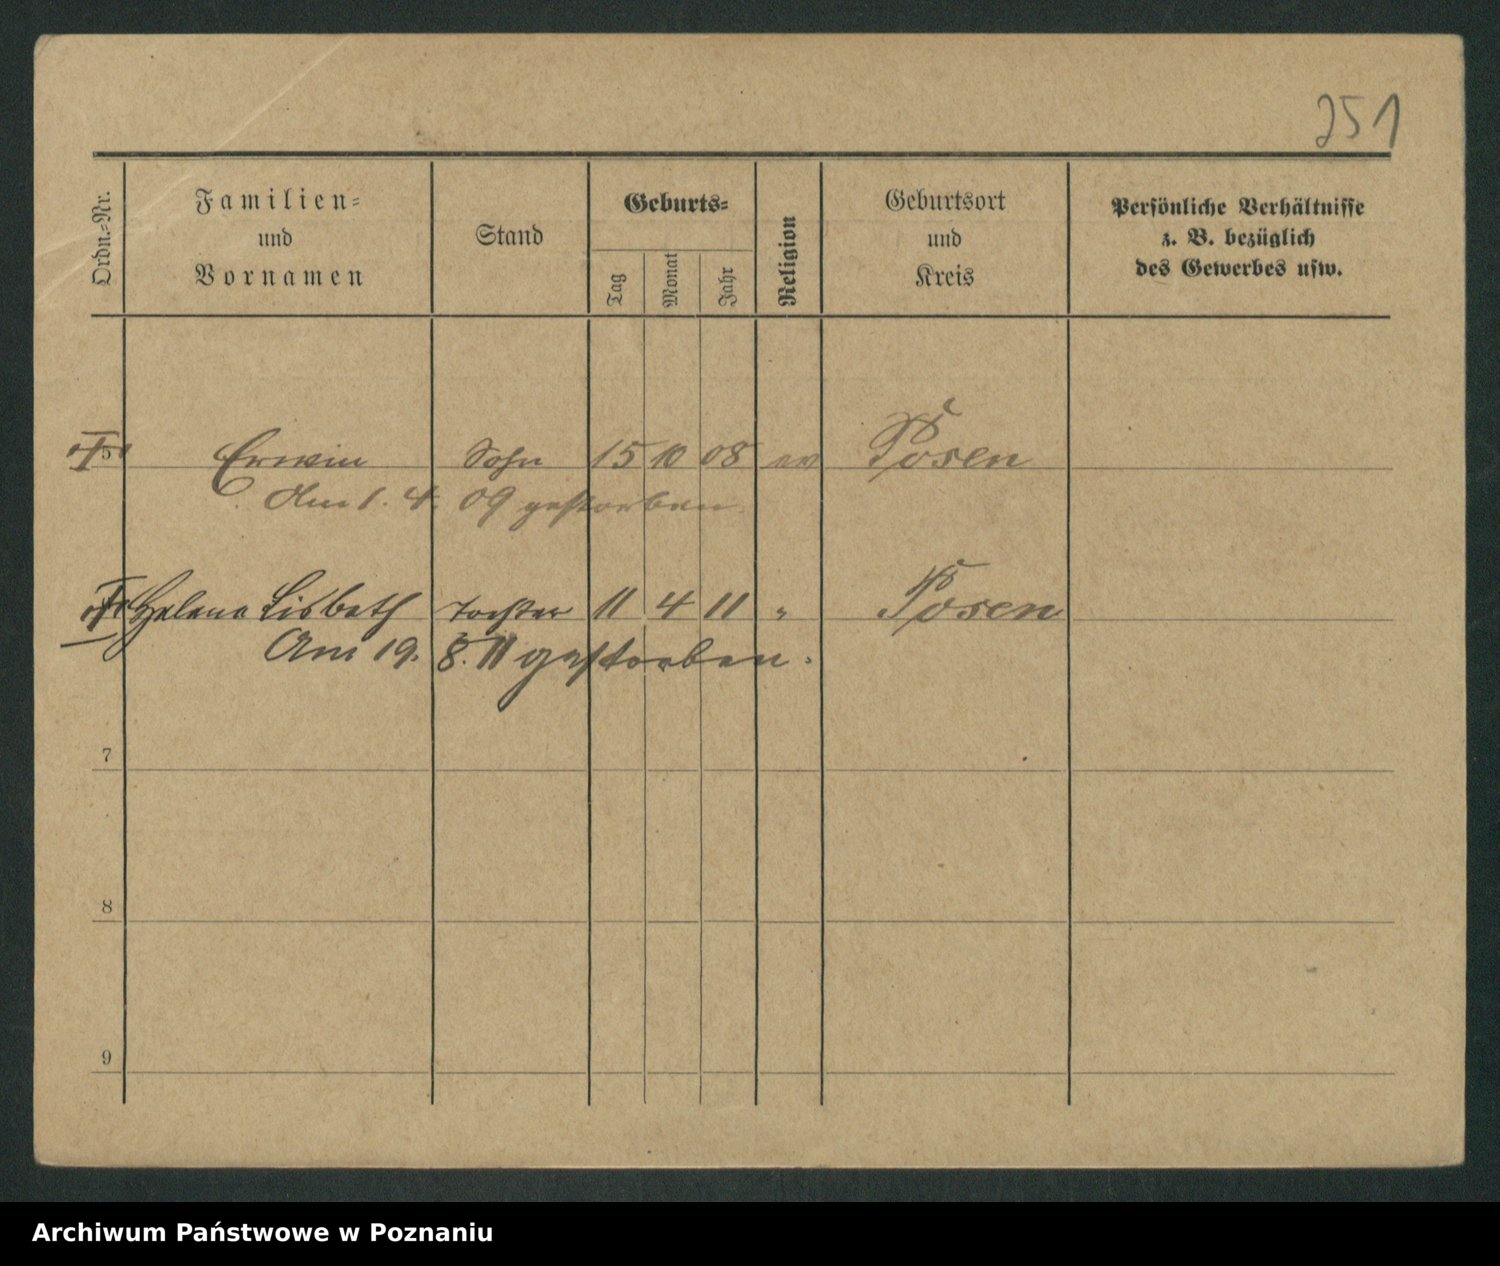 251
Ordn.-Nr.
Familien-
und
Vornamen
Stand
Geburts-
Tag
Monat
Jahr
Religion
Geburtsort
und
Kreis
Persönliche Verhältnisse
z. B. bezüglich
des Gewerbes usw.
5 Erwin Sohn 15 10 08 ev Posen
Am 1. 4. 09 gestorben
Helena Lisbeth Tochter 11 4 11 " Posen
Am 19. 8. 11 gestorben.
7
8
9
Archiwum Państwowe w Poznaniu